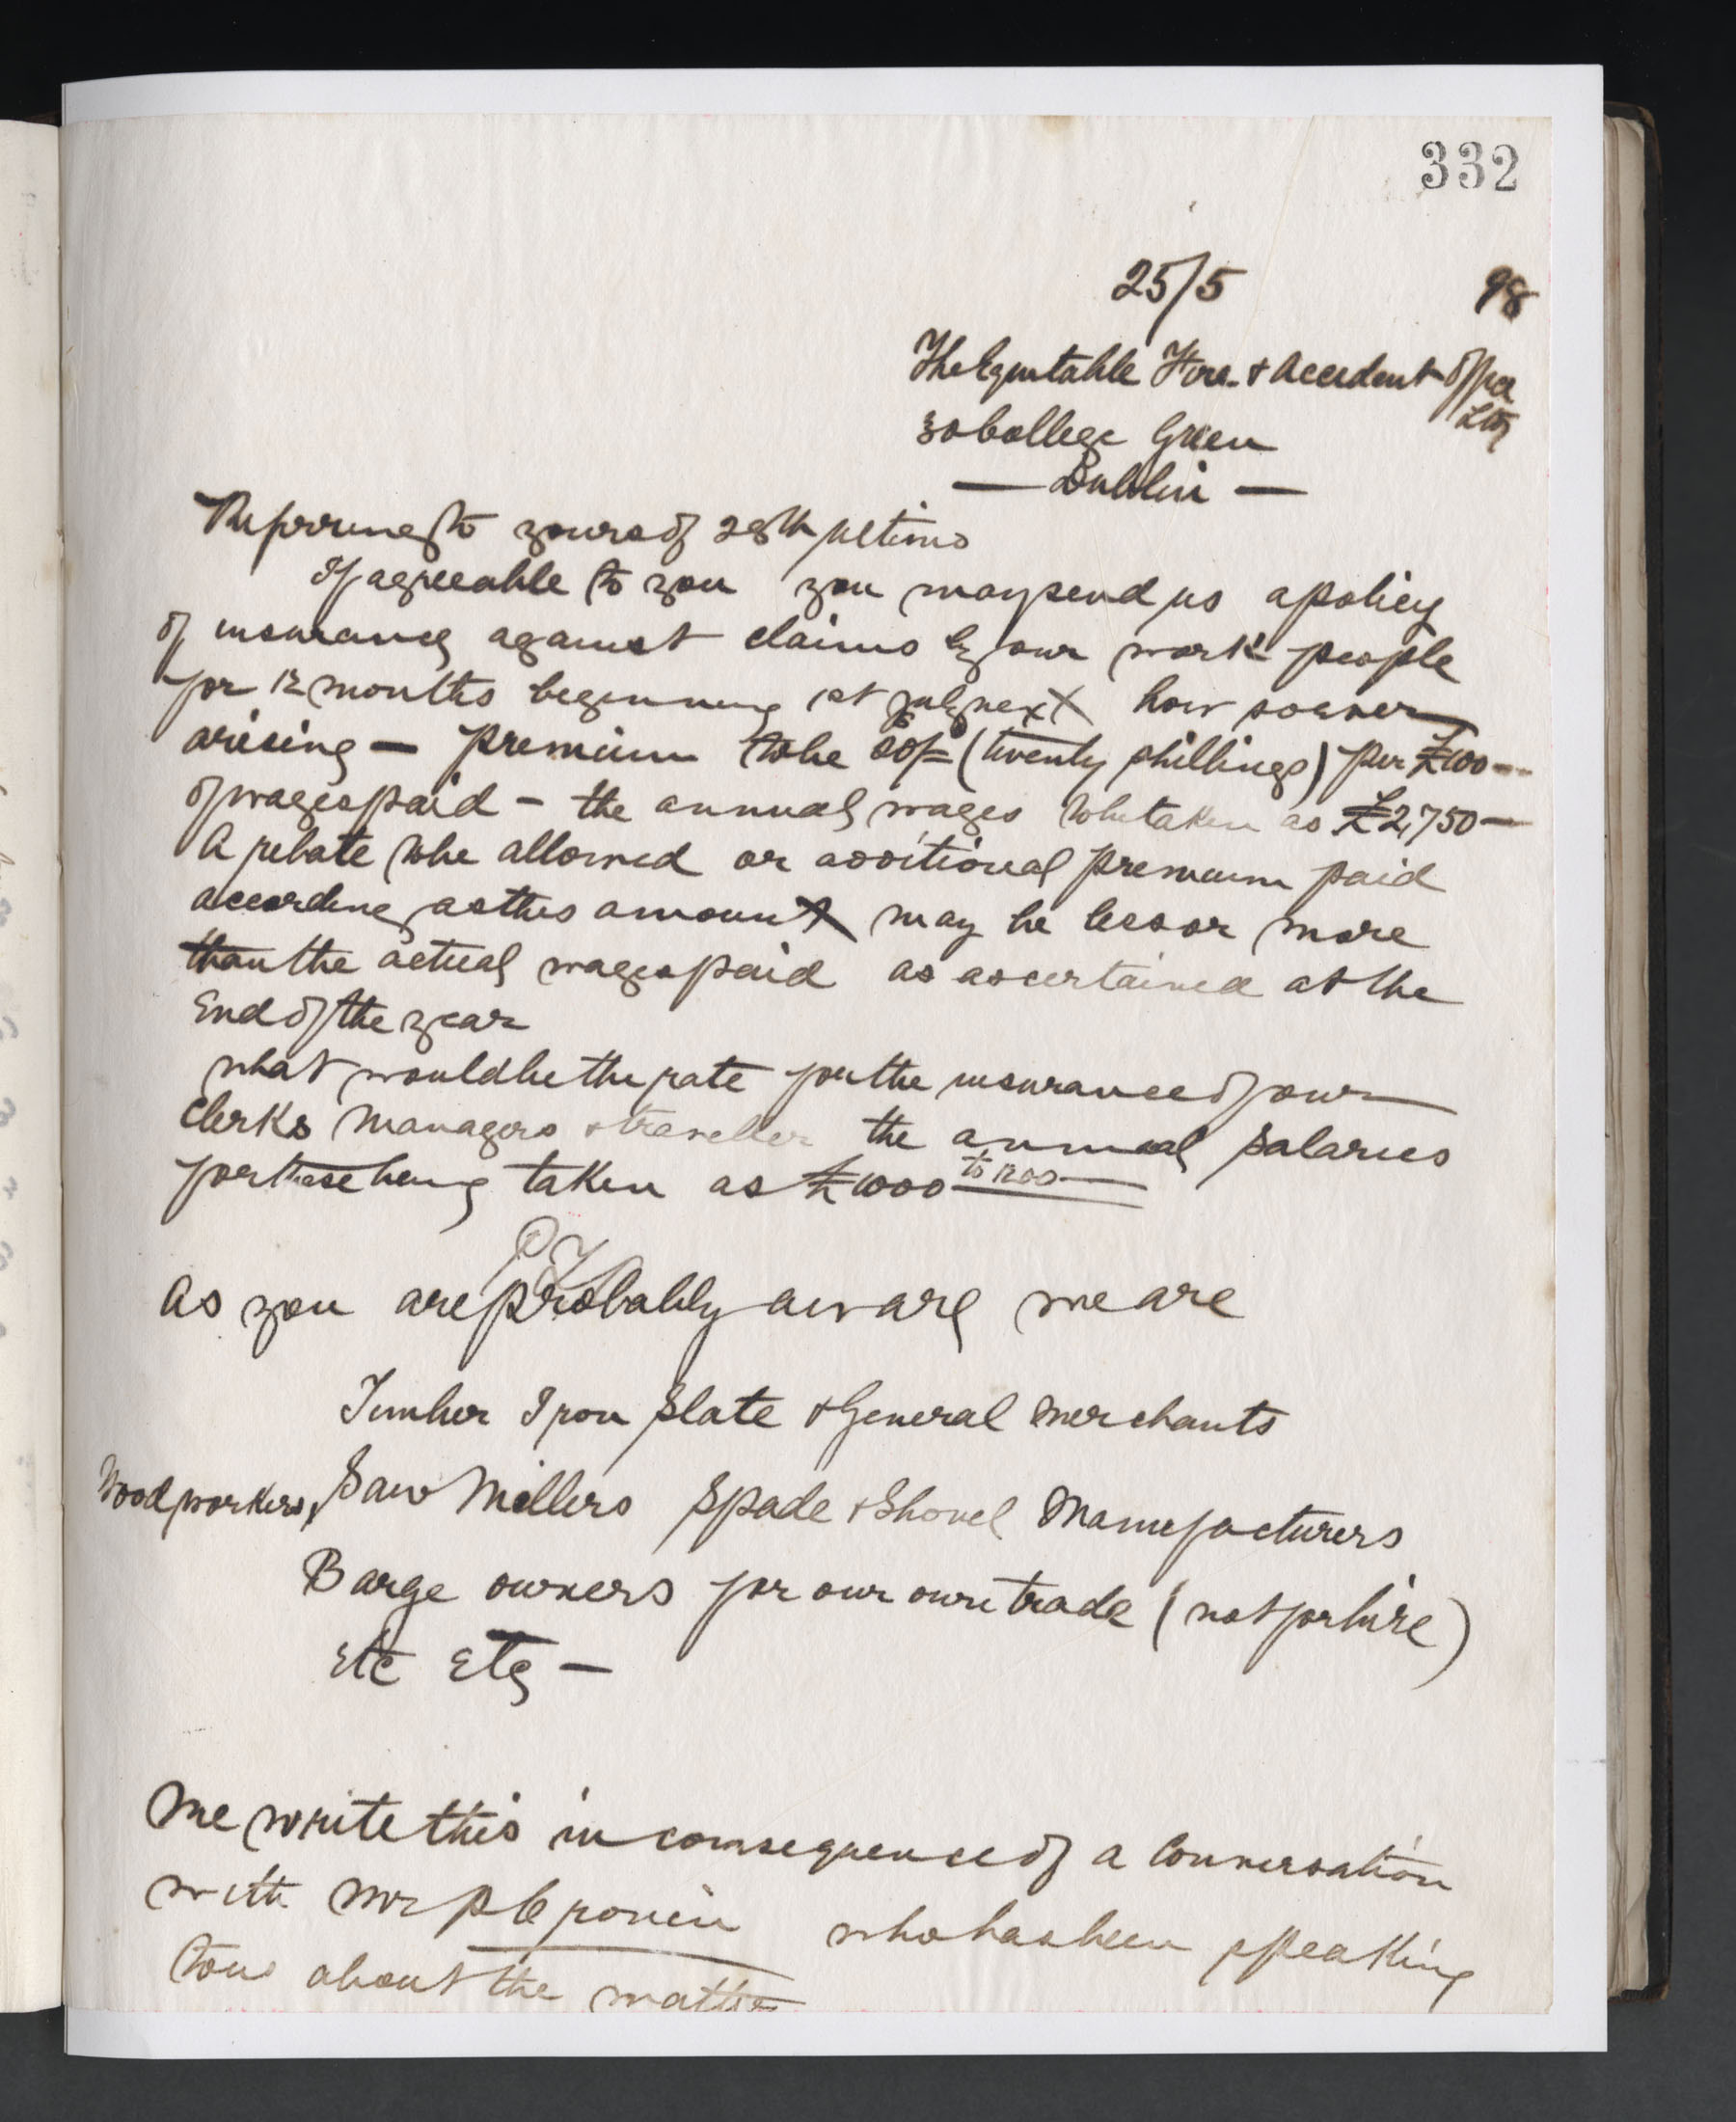 332
25/5 98
The Equitable Fire & Accident Office
Ltd
30 College Green
— Dublin —
Referring to yours of 28th ultimo
If agreeable to you you may send us a policy
of insurance against claims by our work people
for 12 months beginning 1st July next how soever
arising — premium to be 20/= (twenty shillings) per £100 —
of wages paid — the annual wages to be taken as £2,750 —
A rebate to be allowed or additional premium paid
according as this amount may be less or more
than the actual wages paid as ascertained at the
End of the year
What would be the rate for the insurance of our
Clerks Managers & traveller the annual salaries
for these being taken as £1000 to 1200 —
As you are probably aware we are
Timber Iron Slate & General Merchants
Woodworkers, Saw Millers Spade & Shovel Manufacturers
Barge owners for our own trade (not for hire)
Etc Etc —
We write this in consequence of a Conversation
with Mr who has been speaking
to us about the matter